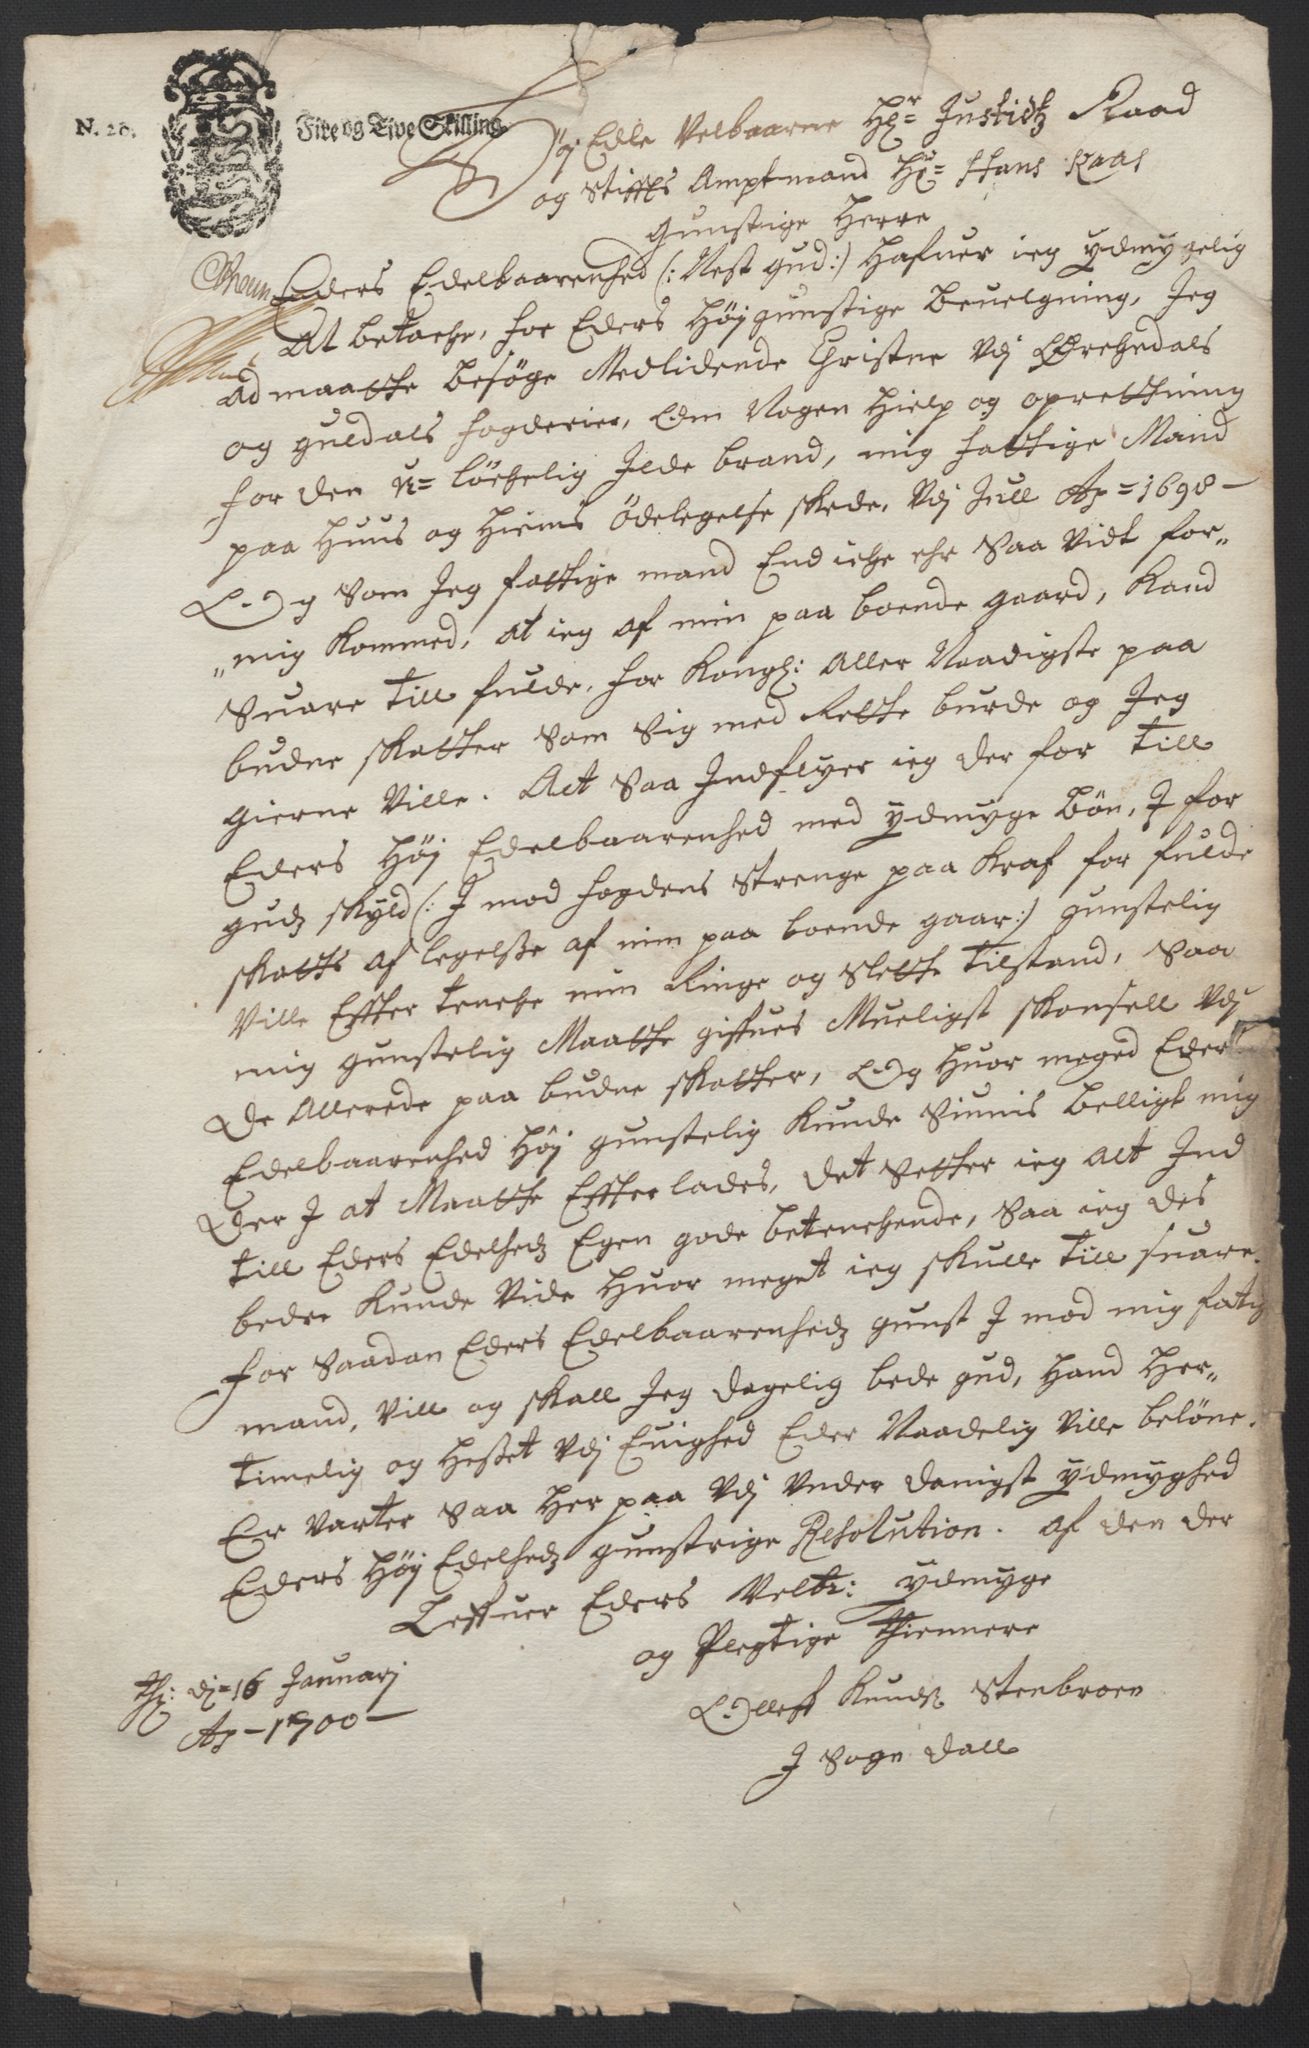 N. 20.
Fire og Tive Skilling
Høj Edle Velbaarne Hr= Justidtz Raad
og Stiffts Amptmand Hr= Hans Kaas
Gunstige Herre
Eders Edelbaarenhed (: Nest gud:) Hafuer ieg ydmygelig
At betache, for Eders Høj gunstige beuelgning, Jeg
Ad maatte besøge Medlidende Christne Vdj Orchedals
og guldals fogderier, Om Nogen hielp og oprettning
for den U= løchelig Ilde brand, mig fattige Mand
paa Huus og Hiems Ødelegelse skede, Vdj Jull Ao=1698-
Og Som Jeg fattige mand End iche ehr Saa Vidt for„
„mig Kommed, at ieg af min paa boende gaard, Kand
Suare till fulde, for Kongl: Aller Naadigste paa
budne skatter Som Sig med Rette burde og Jeg
gierne Ville. Alt Saa Indflyer ieg der for till
Eders Høj Edelbaarenhed med ydmyge bøn, I for
gudz skyld (: I mod fogdens Strenge paa Kraf for fulde
skatts af legelsse af min paa boende gaar:) gunstelig
Ville Effter tenche min Ringe og Slette tilstand, Saa
mig gunstelig Maatte giffues Mueligst skonsell Vdj
De Allerede paa budne skatter, Og Huor meged Eders
Edelbaarenhed Høj gunstelig Kunde Siunis belligt mig
Der I at Maatte Effterlades, det Setter ieg alt Ind
till Eders Edelhedz Egen gode betenchende, Saa ieg des
bedre Kunde Vide Huor meget ieg skulle till suare.
for Saadan Eders Edelbaarenhedz gunst I mod mig fatig
mand, Vill og skall Jeg dagelig bede gud, Hand Her„
timelig og Hesset Vdj Euighed Eder Naadelig Ville beløne.
Er Varter Saa Her paa Vdj Vnder danigst ydmyghed
Eders Høj Edelhedz gunstrige Resolution. Af den der
Leffuer Eders Velb: ydmyge
og Plegtige Thiennere
Olleff Knudß. Stenbroen
J Sogn dall
Th: dj=16 Januarj
Ao-1700-